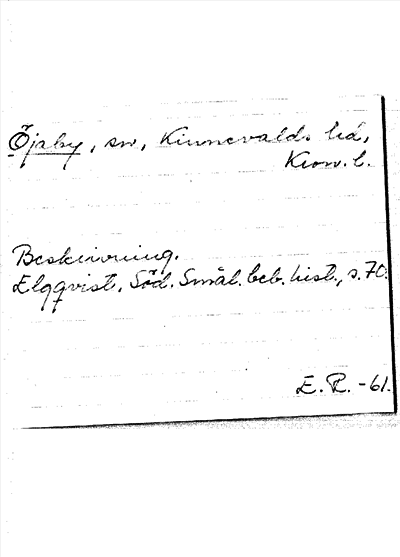 Öjaby, sn, Kinnevalds hd,
Kron. l.
Beskrivning.
Elgqvist, Söd. Smål. beb. hist., s. 70.
E. R. -61.